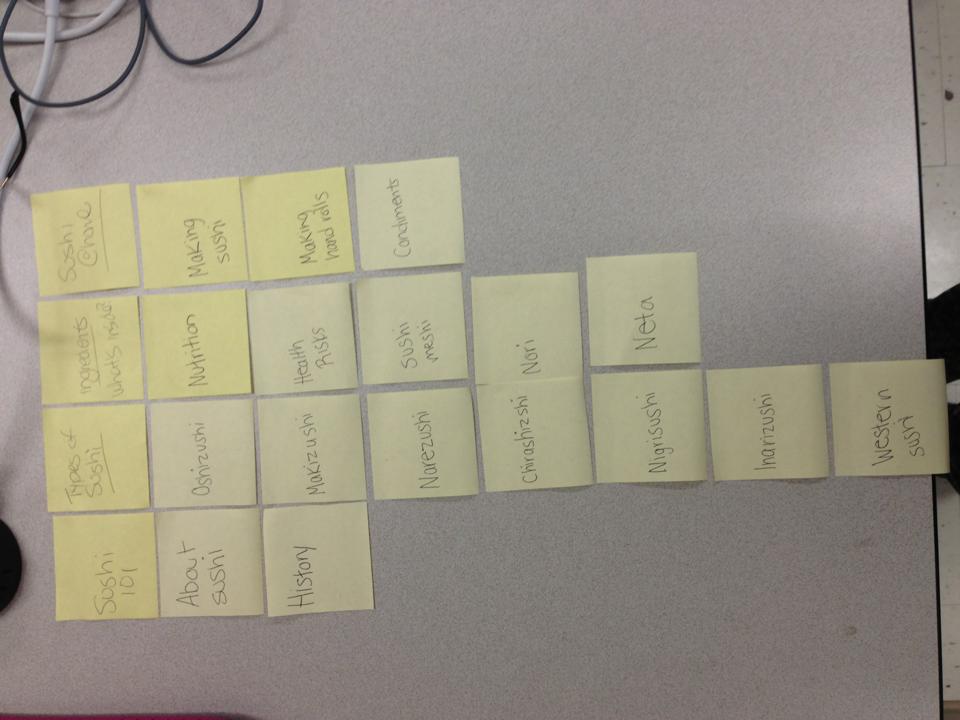 Sushi
101
About
sushi
History
Types of
Sushi
Oshizushi
Makizushi
Narezushi
Chirashizshi
Nigrisushi
Inarizushi
Western
sushi
Ingredients
what's inside?
Nutrition
Health
Risks
Sushi
meshi
Nori
Neta
Sushi
@home
Making
sushi
Making
hand rolls
Condiments